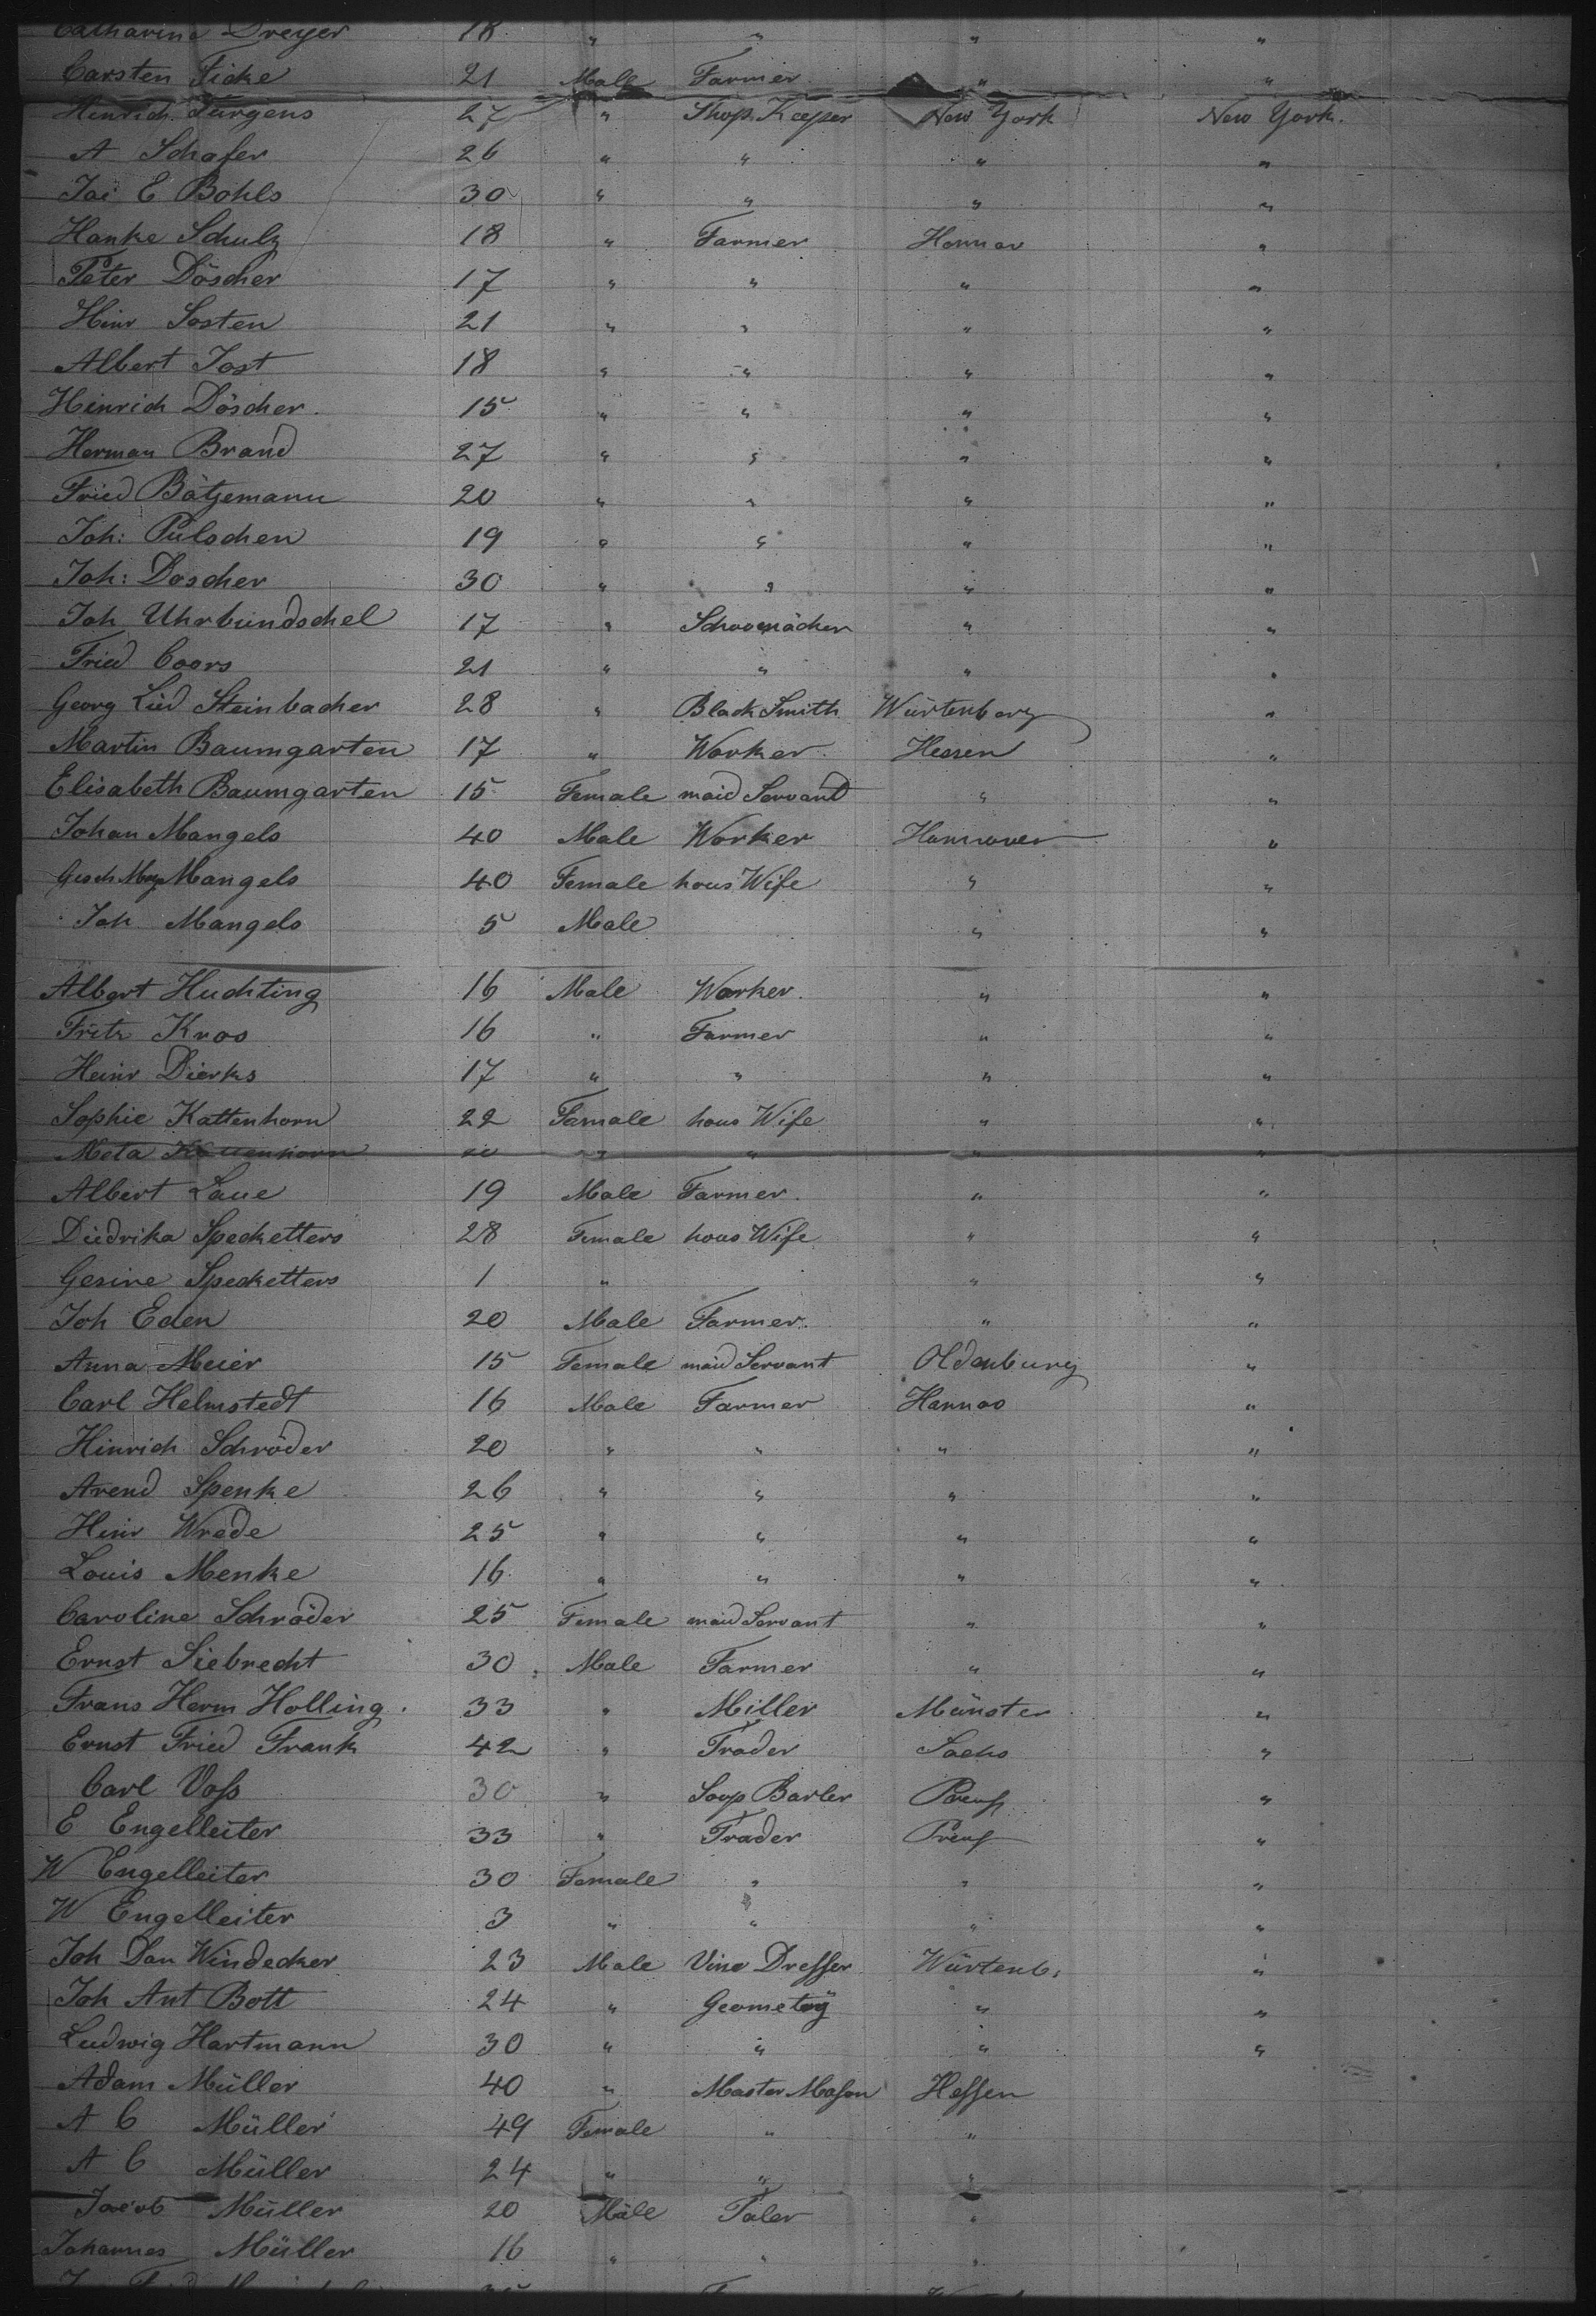 Catharina Dreyer 18 " " " "
Carsten Ficke 21 Male Farmer " "
Hinrich Jürgens 27 " Shop Keeper New York New York.
A Schafer 26 " " " "
Joi E Bohls 30 " " " "
Hanke Schulz 18 " Farmer Hannov "
Peter Döscher 17 " " " "
Hinr Josten 21 " " " "
Albert Jost 18 " " " "
Hinrich Döscher. 15 " " " "
Herman Brand 27 " " " "
Fried Bätjemann 20 " " " "
Joh: Pülschen 19 " " " "
Joh: Doscher 30 " " " "
Joh Uhrbündschel 17 " Schoomächer " "
Fried Coors 21 " " " "
Georg Lüd Steinbacher 28 " Black Smith Würtenberg "
Martin Baumgarten 17 " Worker Hessen "
Elisabeth Baumgarten 15 Female maid Servant " "
Johan Mangels 40 Male Worker Hannover "
Gesch Mangels 40 Female hous Wife " "
Joh Mangels 5 Male " "
Albert Huchting 16 Male Worker. " "
Fritz Kroo 16 " Farmer " "
Heinr Dierks 17 " " " "
Sophie Kattenhorn 22 Female hous Wife " "
Meta Kattenhorn " " " "
Albert Laue 19 Male Farmer. " "
Diedrika Specketters 28 Female hous Wife " "
Gesine Specketters 1 " " "
Joh Eden 20 Male Farmer. " "
Anna Meier 15 Female maid Servant Oldenburg "
Carl Helmstedt 16 Male Farmer Hannov "
Hinrich Schröder 20 " " " "
Arend Spenke 26 " " " "
Hinr Wrede 25 " " " "
Louis Menke 16 " " " "
Caroline Schröder 25 Female maid Servant " "
Ernst Siebrecht 30 Male Farmer " "
Frans Herm Holling 33 " Miller Münster "
Ernst Fried Frank 42 " Trader Sachs "
Carl Voss 30 " Soop Barler Preuss "
E Engelleiter 33 " Trader Preuss "
W Engelleiter 30 Female " " "
W Engelleiter 3 " " " "
Joh Dan Windecker 23 Male Vine Dresser Würtenb: "
Joh Ant Bott 24 " Geometry " "
Ludwig Hartmann 30 " " " "
Adam Müller 40 " Master Mason Hessen
A C Müller 49 Female " "
A C Müller 24 " " "
Jacob Müller 20 Male Taler "
Johannes Müller 16 " " "